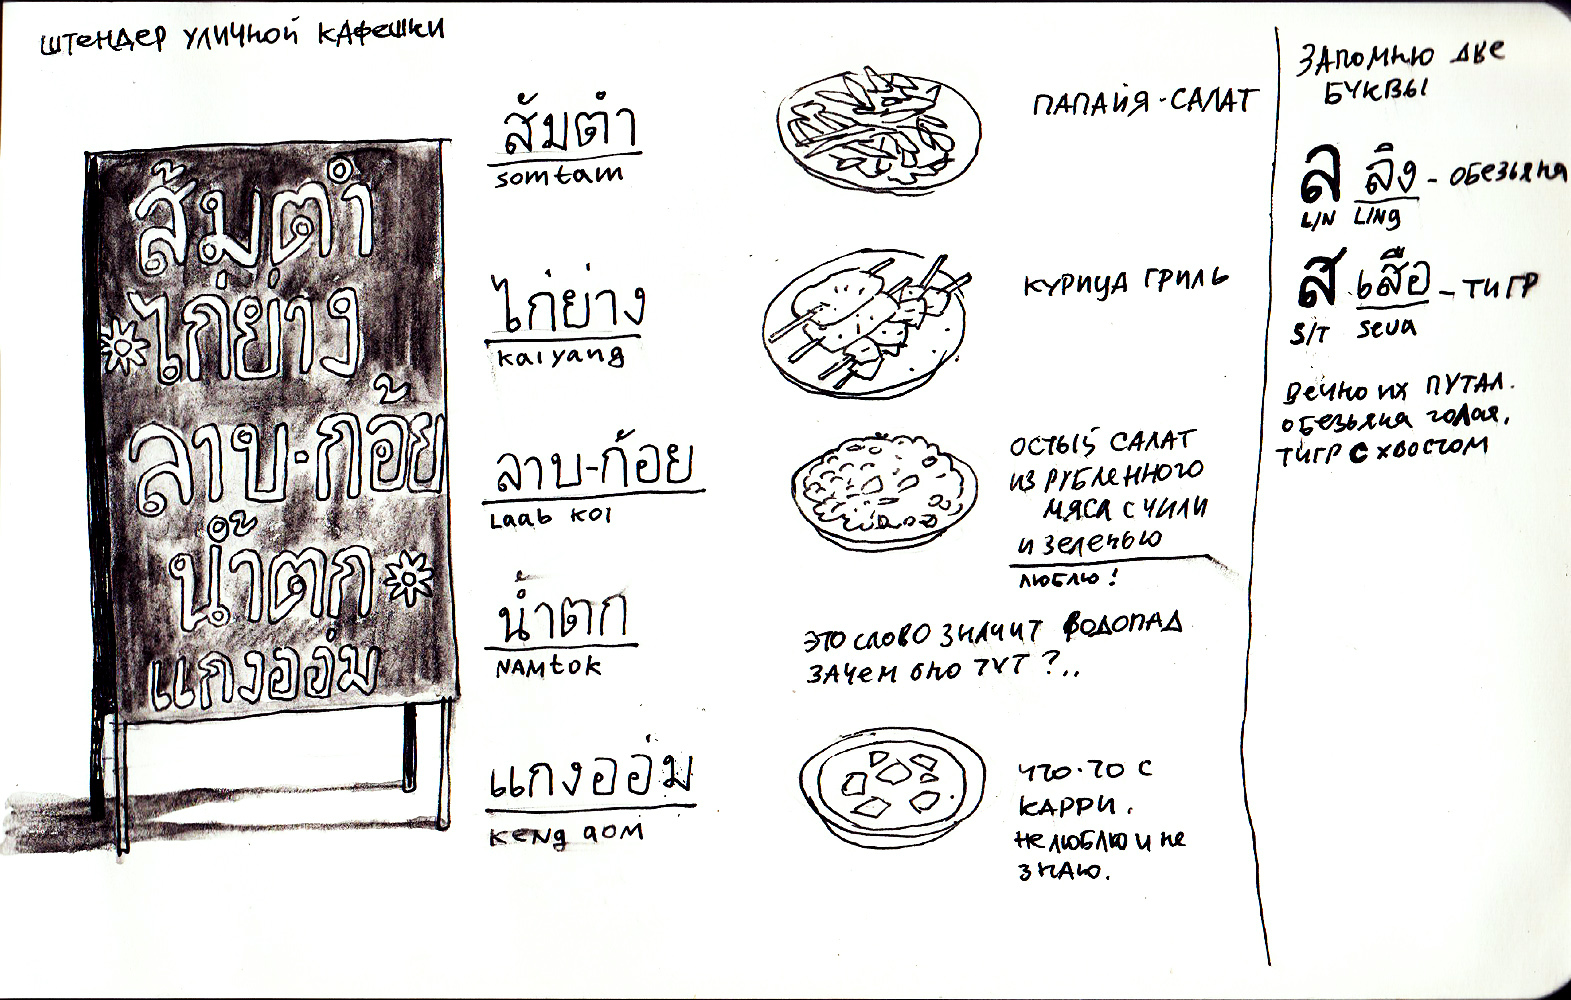 штендер уличной кафешки
ส้มตำ
ไก่ย่าง
ลาบ-ก้อย
น้ำตก
แกงอ่อม
ส้มตำ
somtam
папайя-салат
ไก่ย่าง
kaiyang
курица гриль
ลาบ-ก้อย
Laab koi
острый салат
из рубленного
мяса с чили
и зеленью
люблю!
น้ำตก
namtok
это слово значит водопад
зачем оно тут?..
แกงออ่ม
keng aom
что-то с
карри.
не люблю и не
знаю.
запомню две
буквы
ล ลิง - обезьяна
L/N Ling
ส เสือ - тигр
S/T seua
вечно их путал.
обезьяна голая,
тигр с хвостом